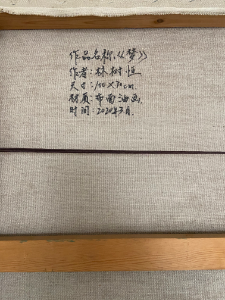 作品名称:《梦》
作者:林树恒
尺寸:100×70cm.
材质:布面油画.
时间:2020年7月.